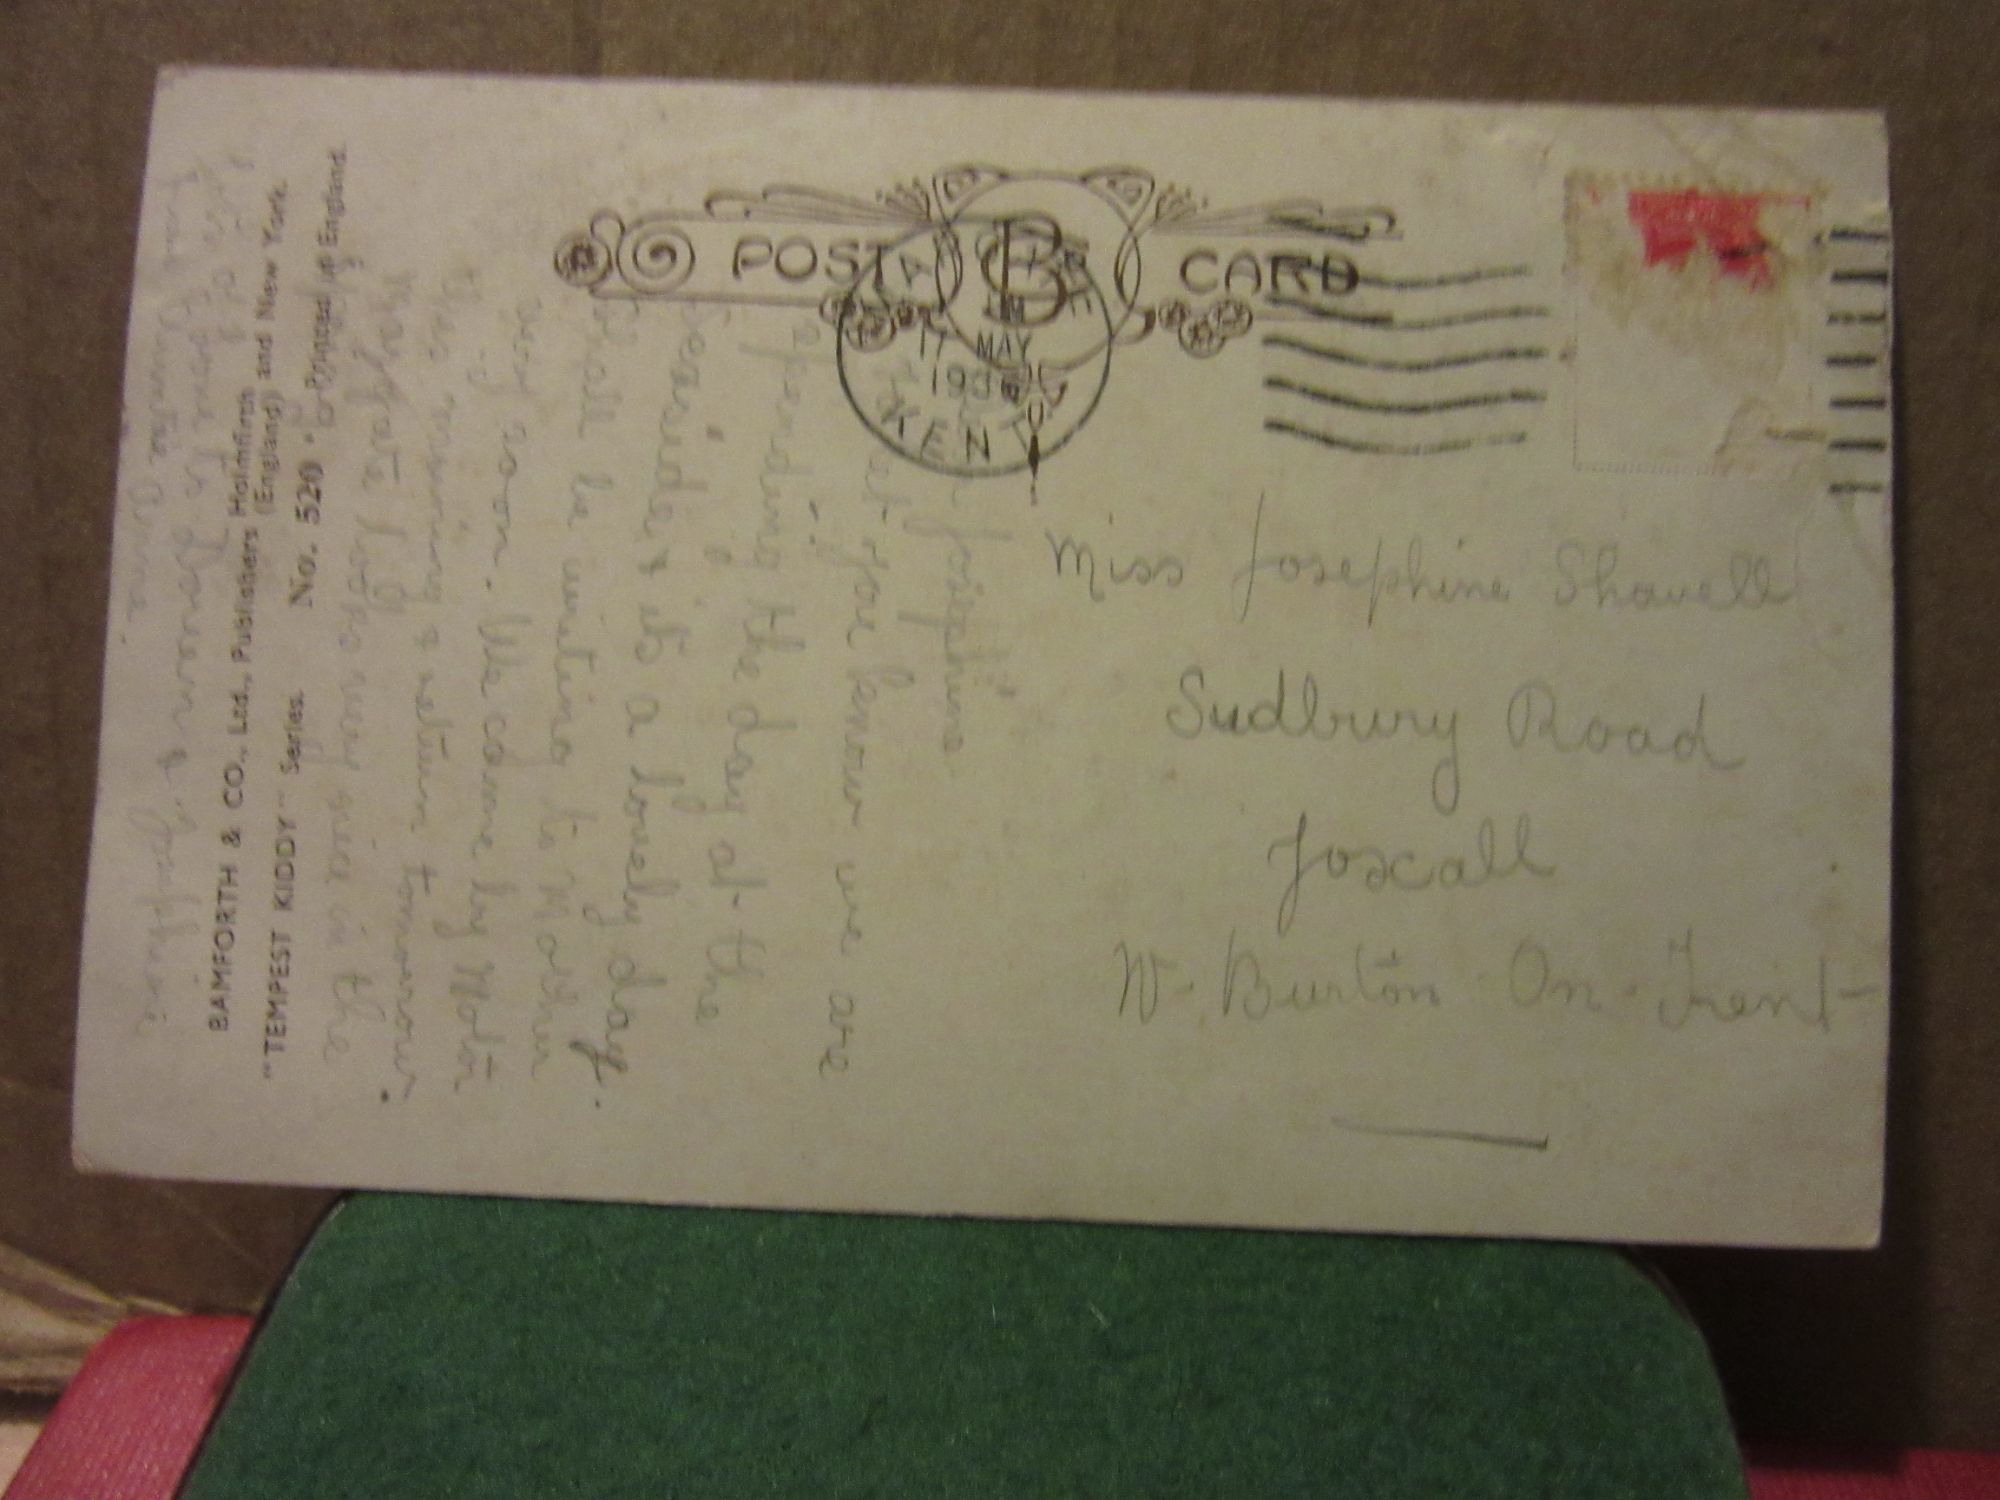 POST CARD
MARGATE
KENT
17 MAY
19
Miss Josephine Shavell
Sudbury Road
Yoxall
N. Burton On-Trent
Josephine
you know we are
spending the day at the
seaside & its a lovely day.
Shall be writing to Mother
very soon. We came by Motor
this morning & return tomorrow.
Margate looks very nice in the
BAMFORTH & CO., Ltd., Publishers Holmfirth
(England) and New York.
"TEMPEST KIDDY" Series. No. 520 Printed in England.
love to Doreen & Josephine
from Auntie Annie.